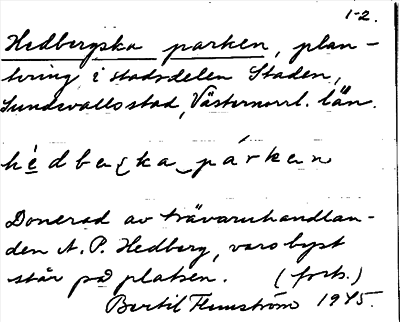 1-2.
Hedbergska parken, plan-
tering i stadsdelen Staden,
Sundsvalls stad, Västernorrl. län.
hédbeʂka párken
Donerad av trävaruhandlan-
den A. P. Hedberg, vars byst
står på platsen. (forts.)
Bertil Flemström 1945.